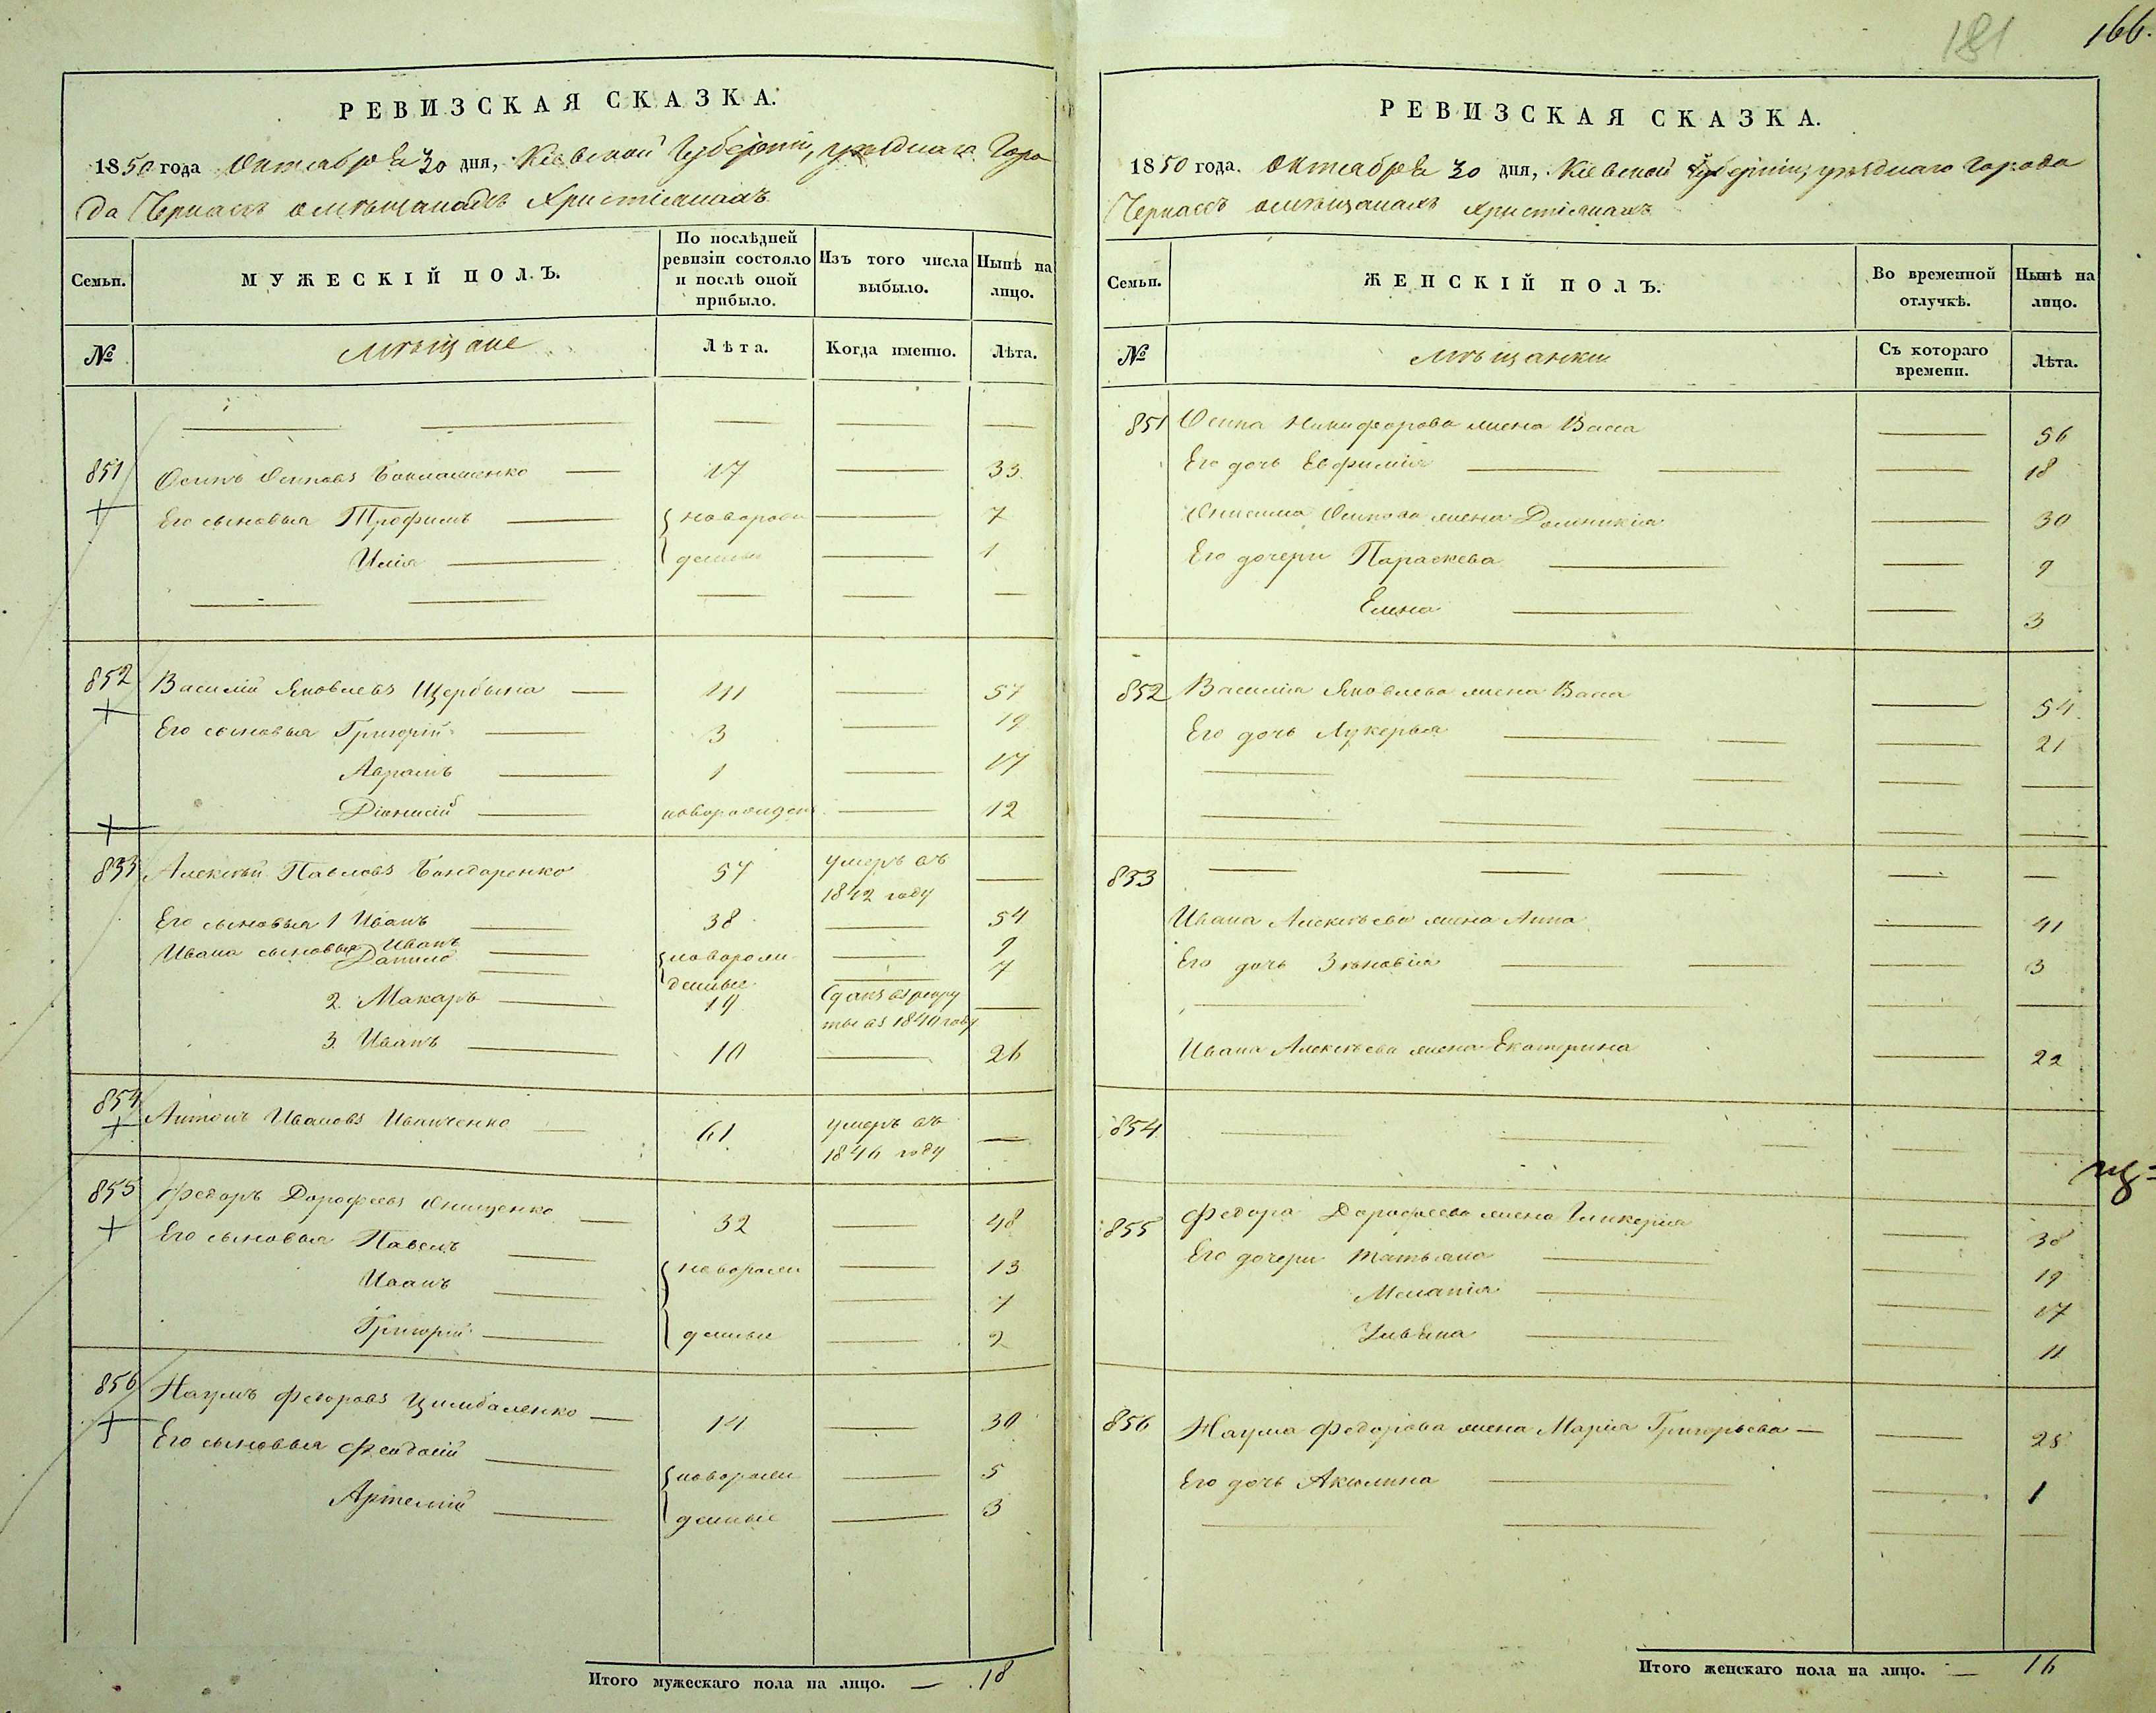 181
166.
РЕВИЗСКАЯ СКАЗКА.
1850 года Октября 30 дня, Кіевской Губерніи, уѣзднаго Горо
да Черкассъ о мѣщанахъ Христіянахъ
Семьи.
МУЖЕСКІЙ ПОЛЪ.
По послѣдней ревизіи состояло и послѣ оной прибыло.
Изъ того числа выбыло.
Нынѣ на лицо.
№
Мѣщане
Лѣта.
Когда именно.
Лѣта.
851 Осипъ Осиповъ 17 — 33
Его сыновья Трофимъ — новорож — 7
Илія — денные — 1
852 Василій Яковлевъ Щербина — 41 — 57
Его сыновья Григорій — 3 — 19
Аврамъ — 1 — 17
Діонисій — новорожден — 12
853 Алексѣй Павловъ Бондаренко 57 умеръ въ 1842 году —
Его сыновья 1 Иванъ — 38 — 54
Ивана сыновья Иванъ — новорож — 9
Данило — денные — 7
2. Макаръ — 19 Сданъ въ рекруты въ 1840 году —
3. Иванъ — 10 — 26
854 Антонъ Ивановъ Иванченко — 61 умеръ въ 1846 году —
855 Федоръ Дорофеевъ Онищенко — 32 — 48
Его сыновья Павелъ — новорож — 13
Иванъ — — 7
Григорій — денные — 2
856 Наумъ Федоровъ Цимбаленко — 14 — 30
Его сыновья Феодосій — новорож — 5
Артемій — денные — 3
Итого мужескаго пола на лицо. — 18
РЕВИЗСКАЯ СКАЗКА.
1850 года. Октября 30 дня, Кіевской Губерніи, уѣзднаго Города
Черкассъ о мѣщанахъ Христіянахъ
Семьи.
ЖЕНСКІЙ ПОЛЪ.
Во временной отлучкѣ.
Нынѣ на лицо.
№
Мѣщанки
Съ котораго времени.
Лѣта.
851 Осипа Никифорова жена Васса — 56
Его дочь Евфимія — 18
Онисима Осипова жена Домникія — 30
Его дочери Параскева — 9
Елена — 3
852 Василія Яковлева жена Васса — 54
Его дочь Лукерья — 21
853 —
Ивана Алексѣева жена Анна — 41
Его дочь Зѣновія — 3
Ивана Алексѣева жена Екатерина — 22
854 —
855 Федора Дорофеева жена Гликерія — 38
Его дочери Татьяна — 19
Меланія — 17
Ульяна — 11
856 Наума Федорова жена Марія Григорьева — 28
Его дочь Акилина — 1
Итого женскаго пола на лицо. — 16